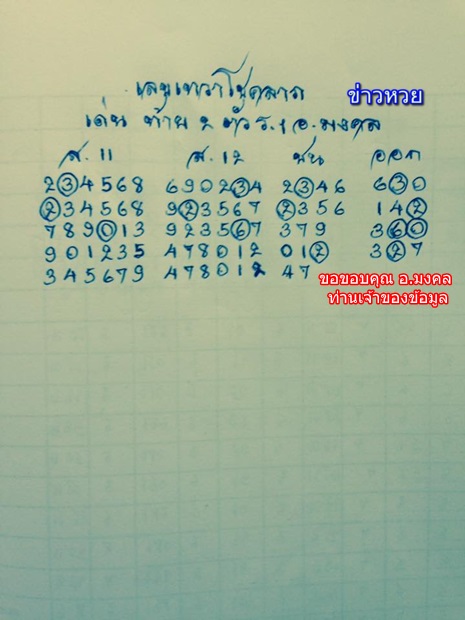 เลขเทวาโชคลาภ
ข่าวหวย
เด่น ท้าย 2 ตัว ร.1 อ.มงคล
ส.11 ส.12 ชน ออก
234568 690234 2346 630
234568 923567 2356 142
789013 923567 379 360
901235 478012 012 327
345679 478012 47
ขอขอบคุณ อ.มงคล
ท่านเจ้าของข้อมูล